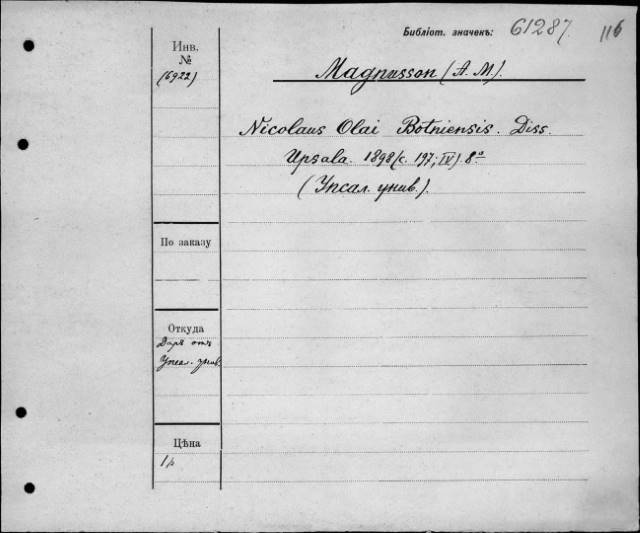 Библіот. значекъ: 61287. 116
Инв.
№
(6922)
Magnusson (A. M.).
Nicolaus Olai Botniensis. Diss.
Upsala. 1898 (c. 197; IV) 8º
(Упсал. унив.).
По заказу
Откуда
Даръ отъ
Упсал. унив.
Цѣна
1р